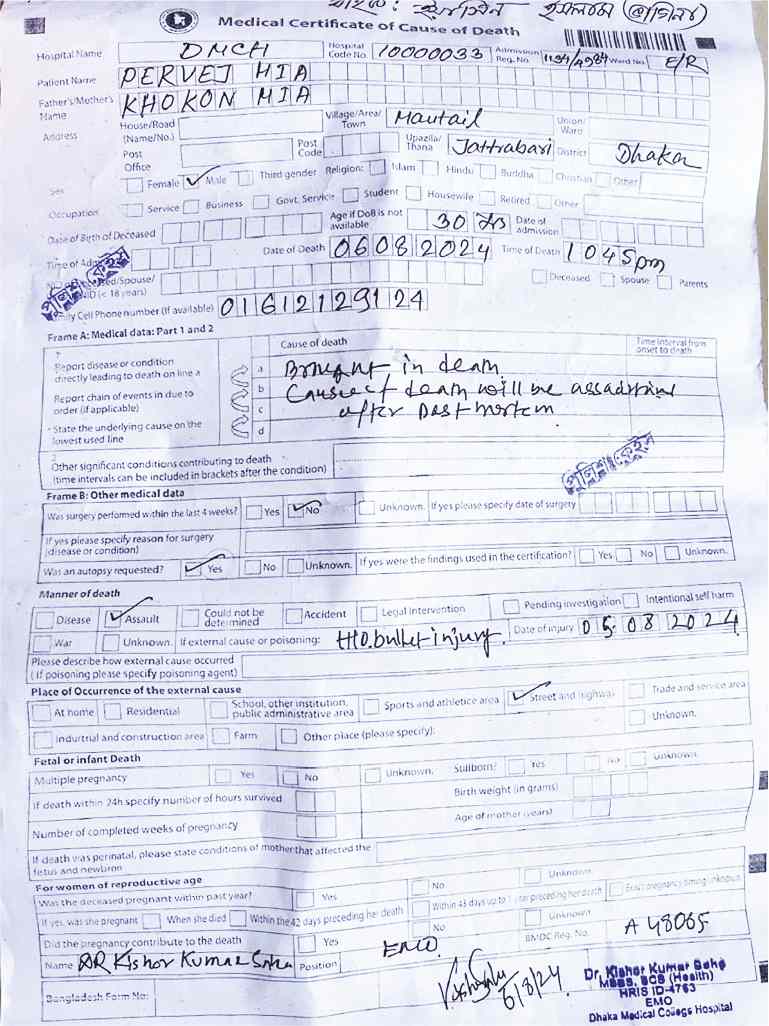 Medical Certificate of Cause of Death
Hospital Name DMCH Hospital Code No. 10000033 Admission Reg. No Ward No. E/R
Patient Name PERVEJ MIA
Father's/Mother's Name KHOKON MIA
Address House/Road (Name/No.) Village/Area/Town Mautail Union/Ward
Post Office Post Code Upazila/Thana Jattrabari District Dhaka
Sex Female ✓ Male Third gender Religion: Islam Hindu Buddha Christian Other
Occupation Service Business Govt. Service Student Housewife Retired Other
Date of Birth of Deceased Age if DoB is not available 30 Date of admission
Time of Date of Death 06 08 2024 Time of Death 1 04 5 pm
/Spouse/ NID (< 18 years) Deceased Spouse Parents
Cell Phone number (If available) 01612129124
Frame A: Medical data: Part 1 and 2
Cause of death Time interval from onset to death
Report disease or condition directly leading to death on line a
a Brought in death
Report chain of events in due to order (if applicable)
b Cause of death will be
c after Post mortem
State the underlying cause on the lowest used line
d
Other significant conditions contributing to death (time intervals can be included in brackets after the condition)
Frame B: Other medical data
Was surgery performed within the last 4 weeks? Yes ✓ No Unknown. If yes please specify date of surgery
If yes please specify reason for surgery (disease or condition)
Was an autopsy requested? ✓ Yes No Unknown. If yes were the findings used in the certification? Yes No Unknown.
Manner of death
Disease ✓ Assault Could not be determined Accident Legal Intervention Pending investigation Intentional self harm
War Unknown. If external cause or poisoning: H/O. bullet injury. Date of injury 05 08 2024
Please describe how external cause occurred ( If poisoning please specify poisoning agent)
Place of Occurrence of the external cause
At home Residential School, other institution, public administrative area Sports and athletice area ✓ Street and highway Trade and service area
Indurtrial and construction area Farm Other place (please specify): Unknown.
Fetal or infant Death
Multiple pregnancy Yes No Unknown. Stillborn? Yes No Unknown.
If death within 24h specify number of hours survived Birth weight (in grams)
Number of completed weeks of pregnancy Age of mother (years)
If death was perinatal, please state conditions of mother that affected the fetus and newbron
For women of reproductive age
Was the deceased pregnant within past year? Yes No Unknown
If yes, was she pregnant When she died Within the 42 days preceding her death Within 43 days up to 1 year preceding her death Exact pregnancy timing unknown
Did the pregnancy contribute to the death Yes No Unknown
Name DR Kishor Kumar Saha Position EMO BMDC Reg. No. A 48065
6/8/24
Bangladesh Form No:
Dr. Kishor Kumar Saha
MBBS, BCS (Health)
HRIS ID-4763
EMO
Dhaka Medical College Hospital